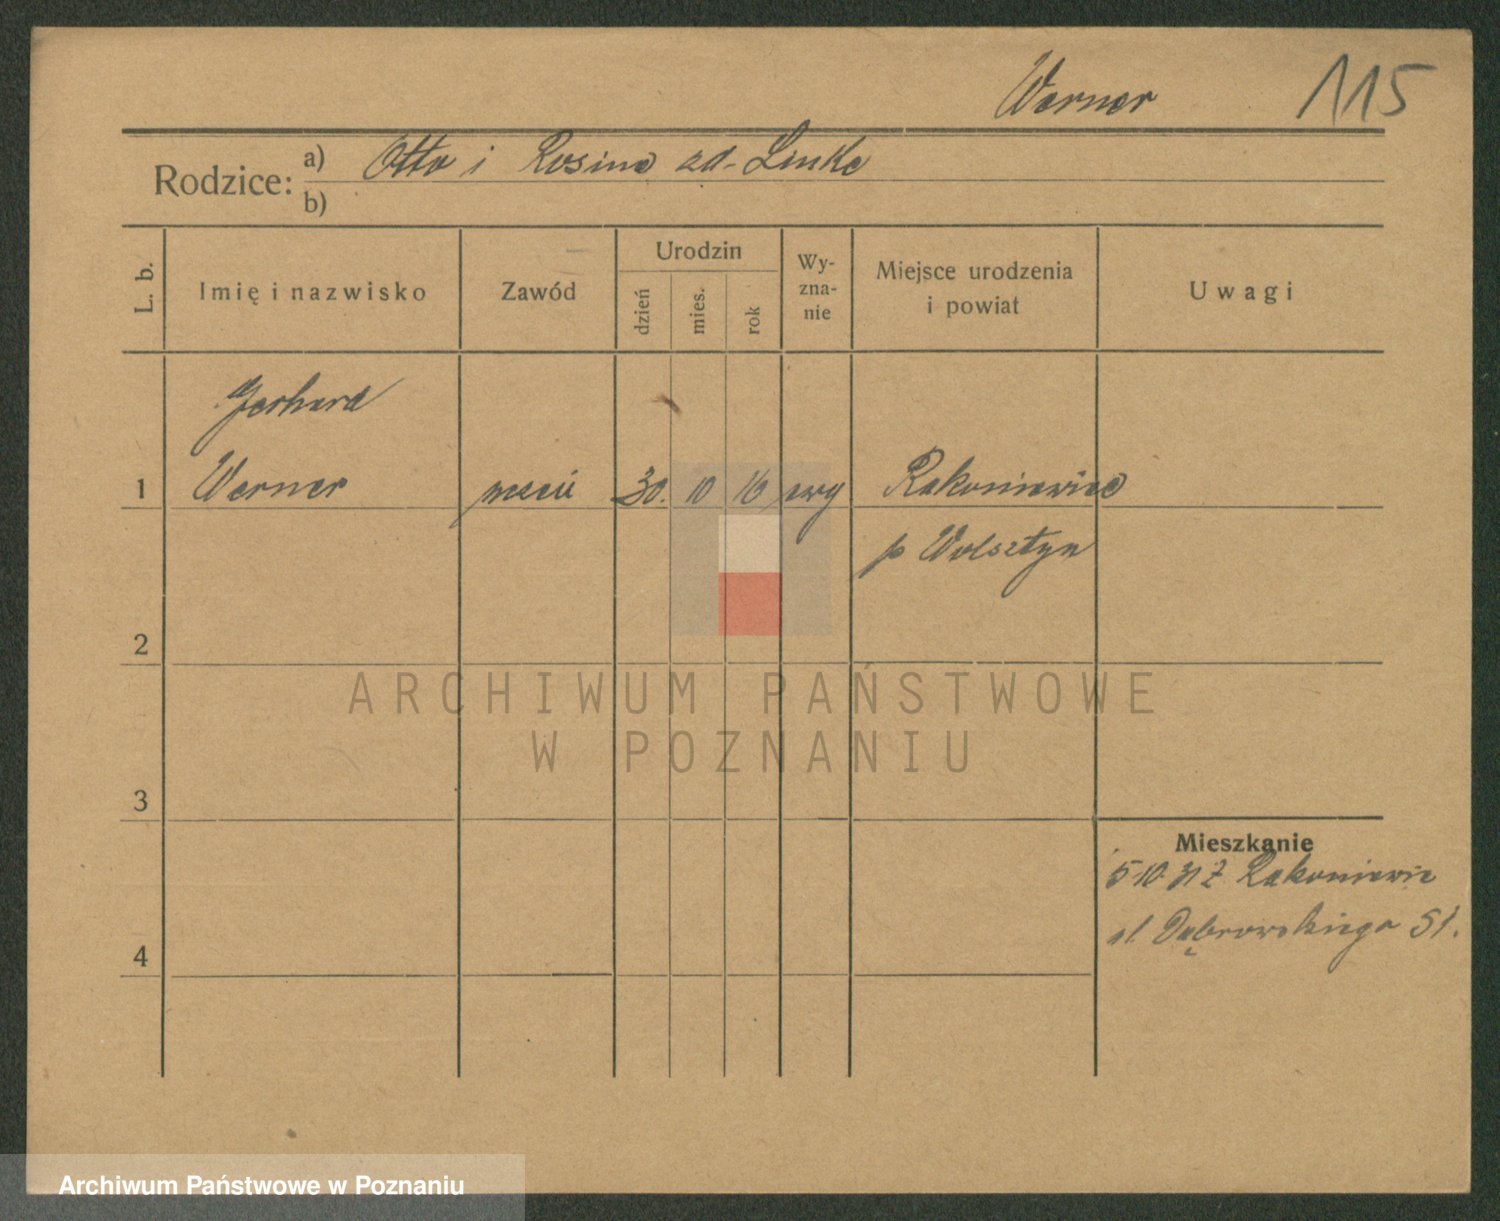 Werner 115
Rodzice: a) Otto i Rosina zd. Linke
b)
L. b. Imię i nazwisko Zawód Urodzin dzień mies. rok Wy-zna-nie Miejsce urodzenia i powiat Uwagi
Gerhard
1 Werner uczeń 30. 10 16 ewg Rakoniewice
p Wolsztyn
2
ARCHIWUM PAŃSTWOWE
W POZNANIU
3
Mieszkanie
5-10-31 z Rakoniewic
ul. Dąbrowskiego 51.
4
Archiwum Państwowe w Poznaniu